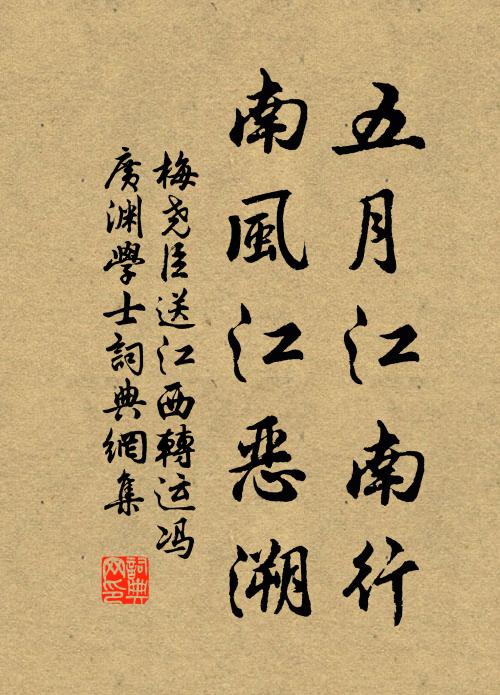 五月江南行
南風江惡溯
梅堯臣送江西轉运冯
廣渊學士詞典網集
詞典网印